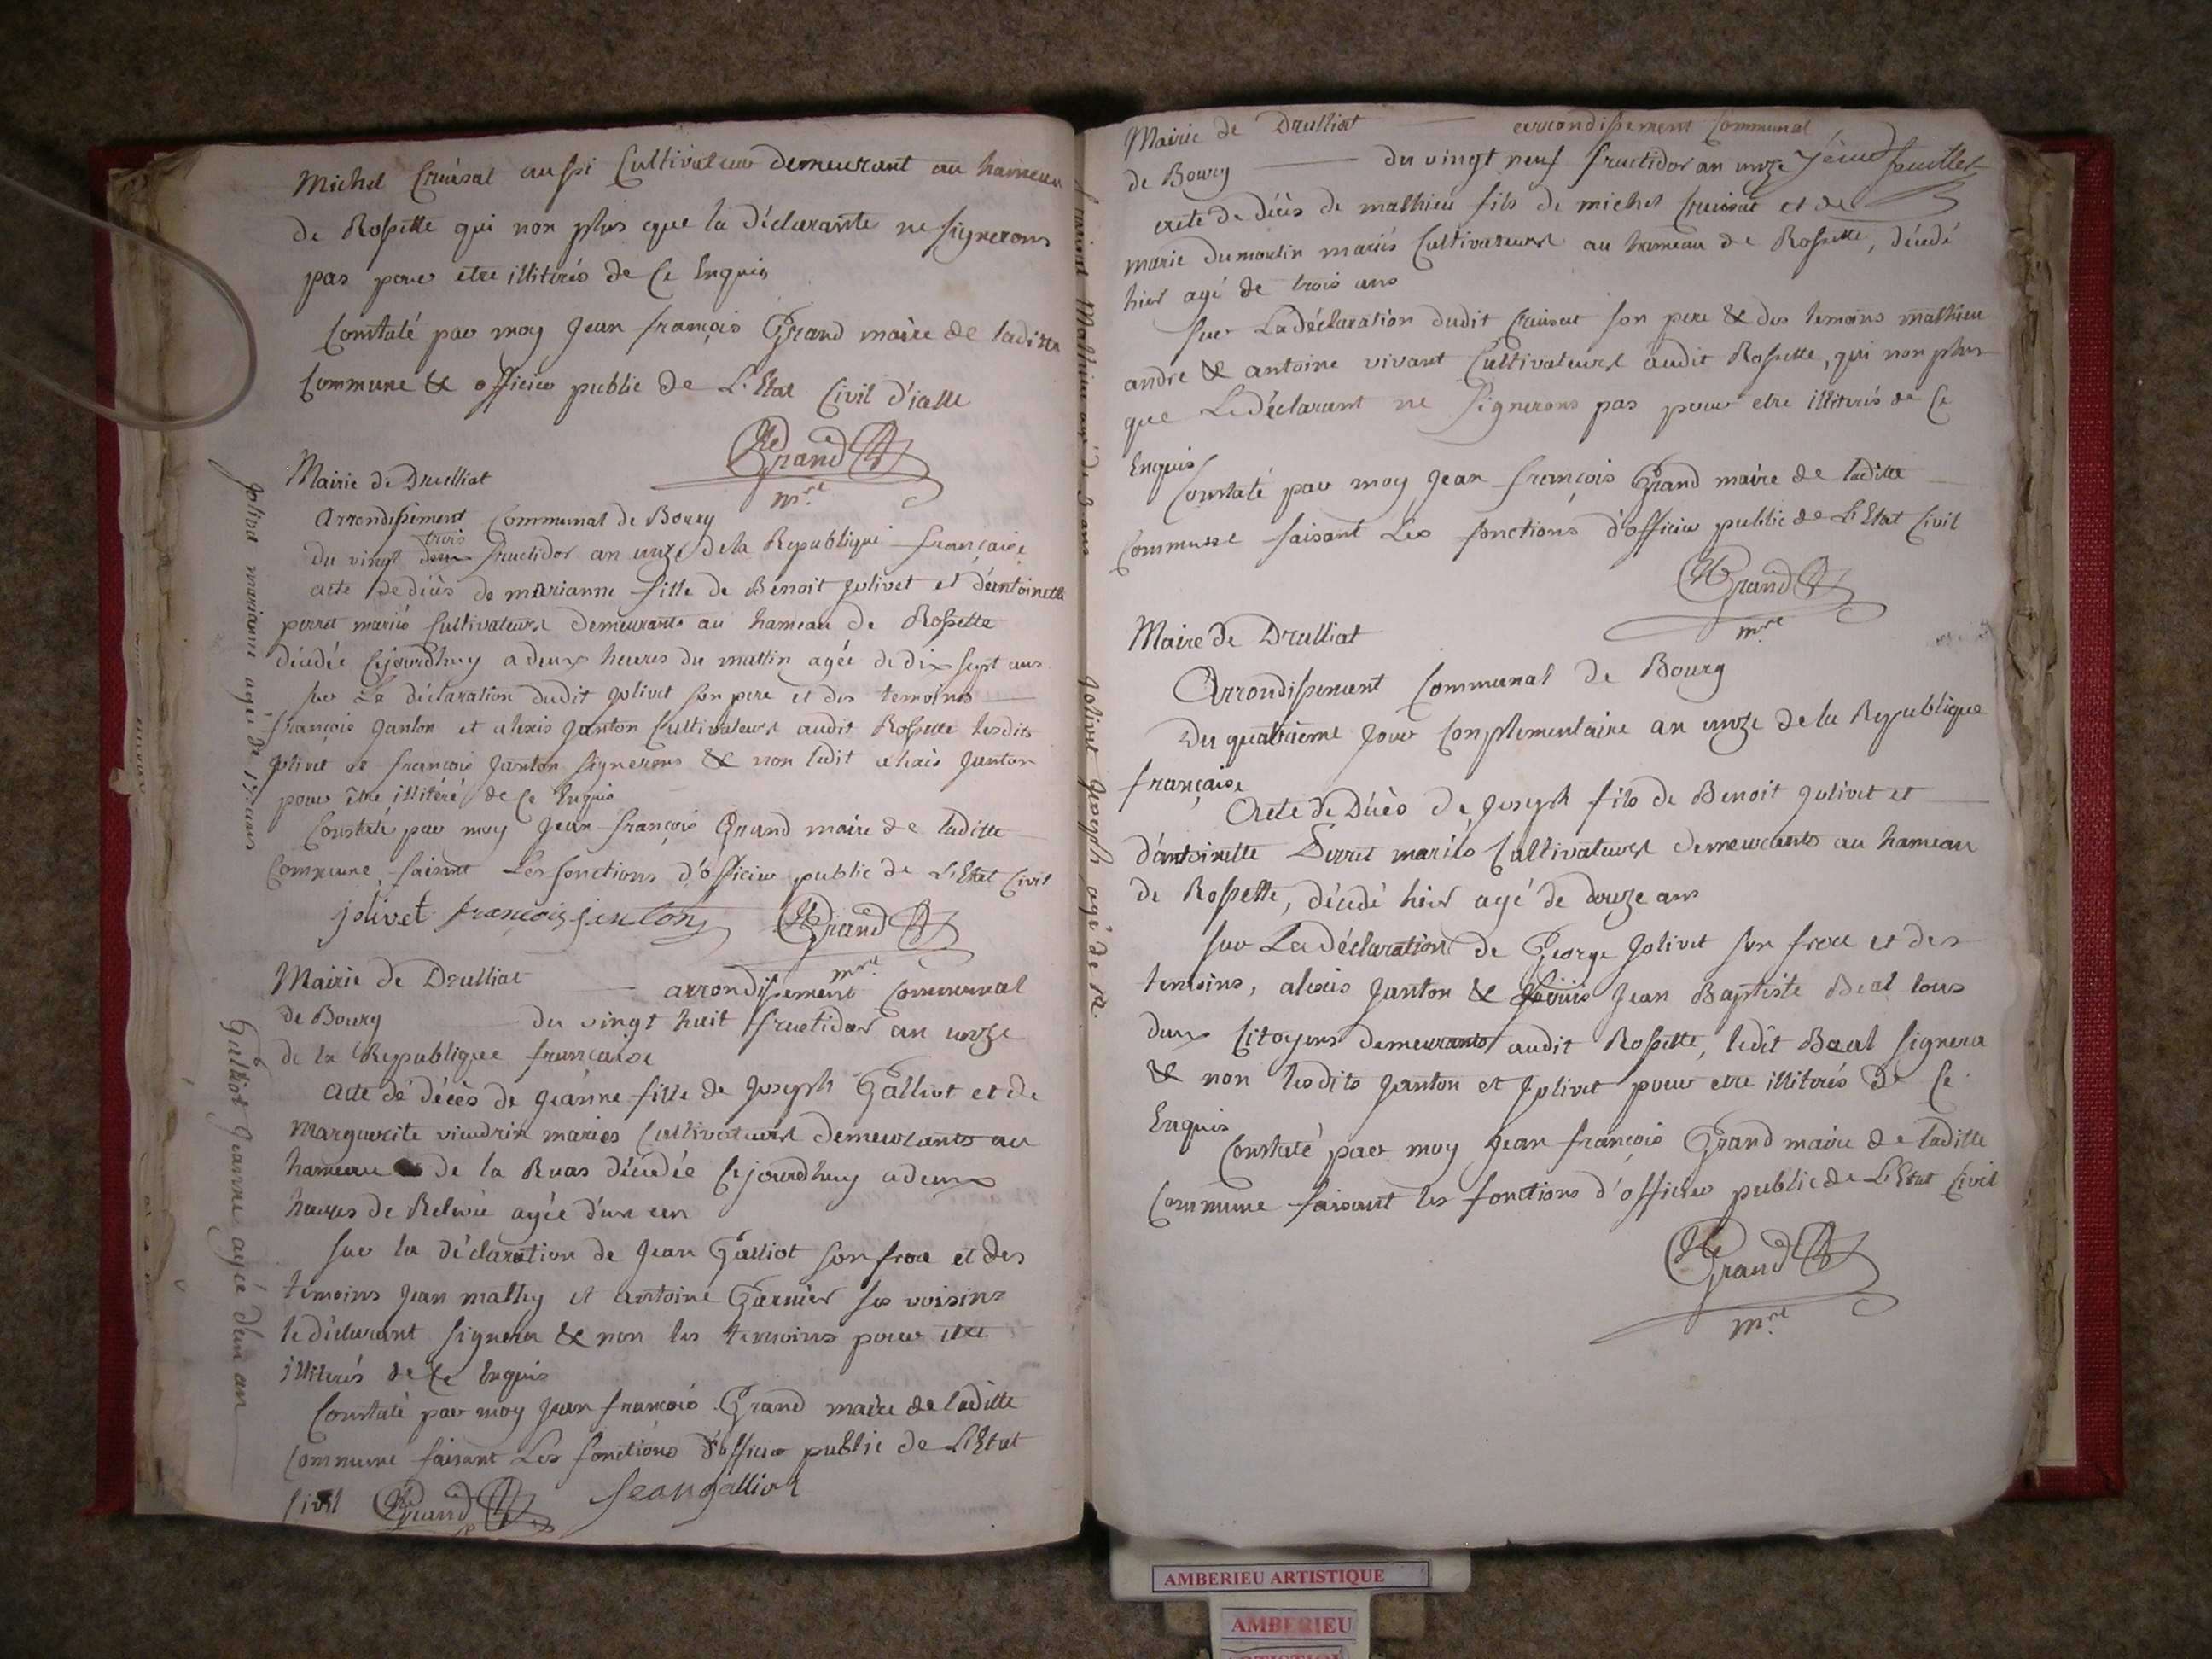 Michel Cruisat aussi Cultivateur demeurant au hameau
de Rossette qui non plus que la déclarante ne signerons
pas pour etre illitérés de Ce Enquis
Constaté par moy Jean françois Grand maire de laditte
Commune & officier public de L'Etat Civil d'icelle
Grand
mre
Mairie de Druilliat
Arrondissement Communal de Bourg
trois
du vingt deux fructidor an unze de la Republique française
acte de décès de marianne fille de Benoit Jolivet et d'antoinette
perret mariés Cultivateurs demeurants au hameau de Rossette
décédée Cejourdhuy a deux heures du mattin agée de dix sept ans
sur La déclaration dudit Jolivet son pere et des temoins
françois Janton et alexis Janton Cultivateurs audit Rossette lesdits
Jolivet et françois Janton signerons & non ledit alexis Janton
pour être illitéré de Ce Enquis
Constaté par moy Jean françois Grand maire de laditte
Commune, faisant Les fonctions d'officier public de L'Etat Civil
jolivet françois jenton Grand
mre
jolivet marianne agée de 17. ans
Mairie de Druilliat arrondissement Communal
de Bourg du vingt huit fructidor an unze
de la Republique française
acte de décès de Jeanne fille de Joseph Galliot et de
Marguerite viendrin mariés Cultivateurs demeurants au
hameau de la Ruas décédée Cejourdhuy a deux
heures de Relevée agée d'un an
sur la déclaration de Jean Galliot son frere et des
témoins Jean mathy et antoine Garnier ses voisins
le déclarant signera & non les temoins pour etre
illiterés de Ce Enquis
Constaté par moy Jean françois Grand maire de laditte
Commune faisant Les fonctions d'officier public de L'Etat
Civil Grand Jean galliot
Galliot Jeanne agée d'un an
Cruisat Mathieu agé de 3 ans
Jolivet Joseph agé de 12.
Mairie de Druilliat arrondissement Communal
de Bourg du vingt neuf fructidor an unze 7ème feuillet
acte de décès de mathieu fils de michel Cruisat et de
marie dumoulin mariés Cultivateurs au hameau de Rossette, décédé
hier agé de trois ans
sur La déclaration dudit Cruisat son pere & des temoins mathieu
andré & antoine vivant Cultivateurs audit Rossette, qui non plus
que Le déclarant ne signerons pas pour etre illiterés de Ce
Enquis
Constaté par moy Jean françois Grand maire de laditte
Commune faisant Les fonctions d'officier public de L'Etat Civil
Grand
mre
Maire de Druilliat
Arrondissement Communal de Bourg
Du quatrieme jour Complimentaire an unze de la Republique
française
Acte de Décès de Joseph fils de Benoit Jolivet et
d'antoinette Perret mariés Cultivateurs demeurants au hameau
de Rossette, décédé hier agé de douze ans
sur La déclaration de George Jolivet son frere et des
temoins, alexis Janton & Jean Baptiste Beal tous
deux Citoyens demeurants audit Rossette, ledit Beal signera
& non lesdits Janton et Jolivet pour etre illiterés de Ce
Enquis
Constaté par moy Jean françois Grand maire de laditte
Commune faisant les fonctions d'officier public de L'Etat Civil
Grand
mre
AMBERIEU ARTISTIQUE
AMBERIEU
ARTISTIQUE